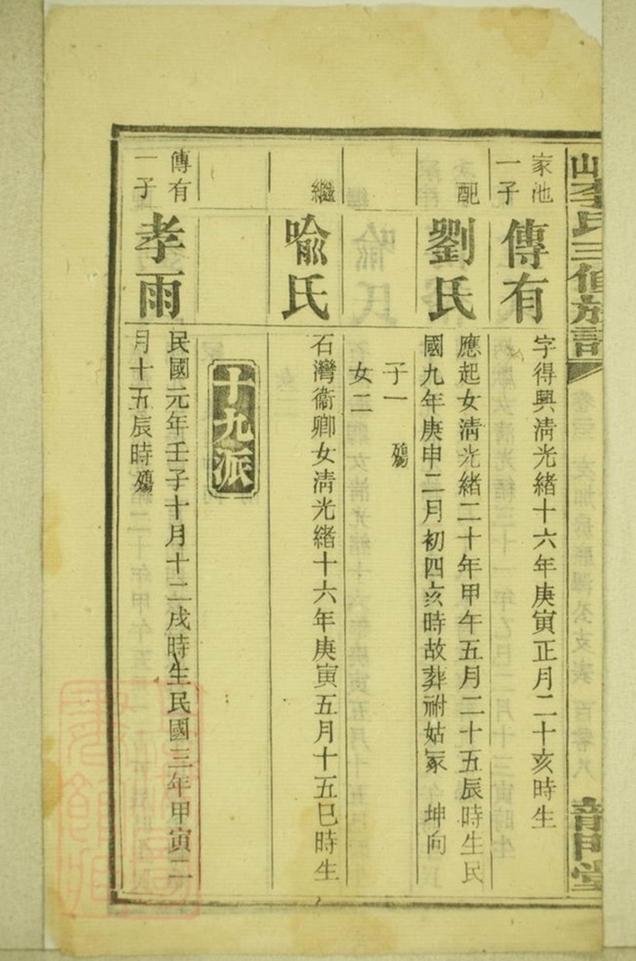 李氏三修族譜
堂
家池
一子
傳有
字得興淸光緒十六年庚寅正月二十亥時生
配
劉氏
應起女淸光緒二十年甲午五月二十五辰時生民
國九年庚申二月初四亥時故葬祔姑冢 坤向
子一 殤
女二
繼
喩氏
石灣衞卿女淸光緒十六年庚寅五月十五巳時生
十九派
傳有
一子
孝雨
民國元年壬子十月十二戌時生民國三年甲寅二
月十五辰時殤